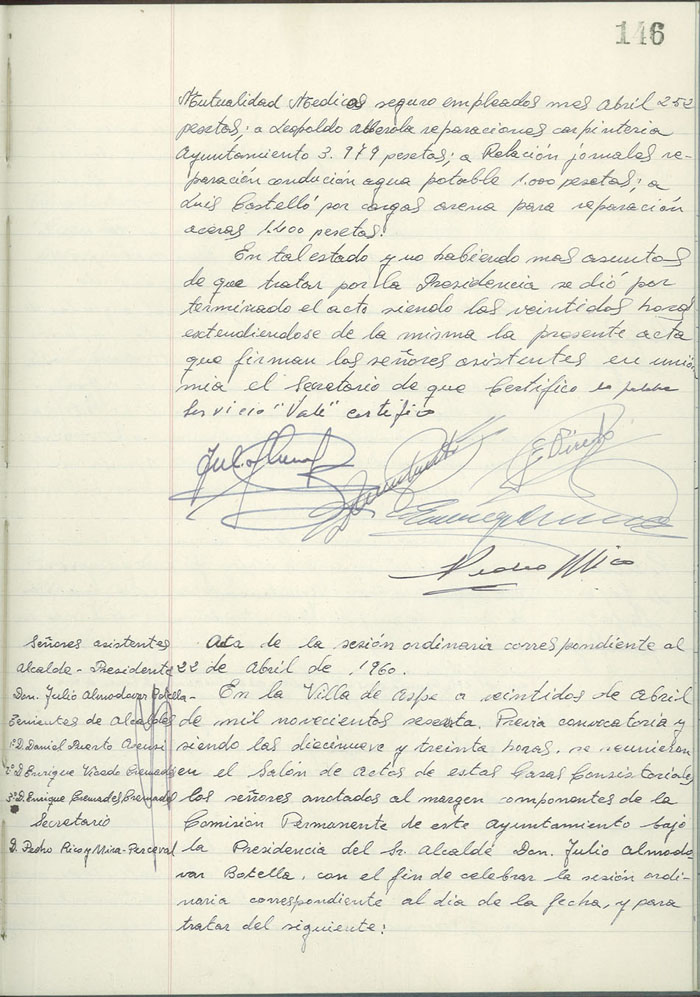 146
Mutualidad Medicas seguro empleados mes Abril 252
pesetas; a Leopoldo Alberola reparaciones carpinteria
Ayuntamiento 3.979 pesetas; a Relación jornales re-
paración condución agua potable 1.000 pesetas; a
Luis Castelló por cargas arena para reparación
aceras 1.400 pesetas.
En tal estado y no habiendo mas asuntos
de que tratar por la Presidencia se dió por
terminado el acto siendo las veintidos horas
extendiendose de la misma la presente acta
que firman los señores asistentes en unión
mia el Secretario de que Certifico la palabra
Servicio "Vale" certifico
Pedro Rico
Señores asistentes
Alcalde-Presidente
Don. Julio Almodovar Botella-
Tenientes de Alcaldes
1º D. Daniel Puerto Asensi
2º D. Enrique Vicedo Cremades
3º D. Enrique Cremades Cremades
Secretario
D. Pedro Rico y Mira-Perceval
Acta de la sesión ordinaria correspondiente al
22 de Abril de 1960.
En la Villa de Aspe a veintidos de Abril
de mil novecientos sesenta. Previa convocatoria y
siendo las diecinueve y treinta horas, se reunieron
en el Salón de Actos de estas Casas Consistoriales
los señores anotados al margen componentes de la
Comisión Permanente de este Ayuntamiento bajo
la Presidencia del Sr. Alcalde Don. Julio Almodo-
var Botella, con el fin de celebrar la sesión ordi-
naria correspondiente al dia de la fecha, y para
tratar del siguiente: